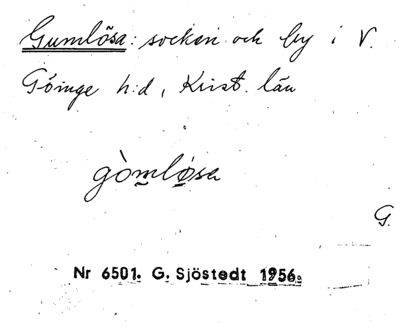 Gumlösa: socken och by i V.
Göinge h:d, Krist. län
gòmlǿsa
G.
Nr 6501. G. Sjöstedt 1956.